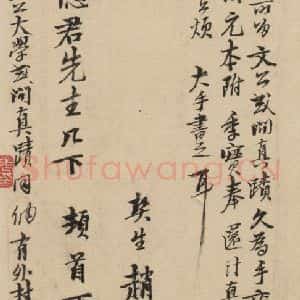 文公或問真蹟久為手
元本附季寶奉還計直
煩 大手書之耳
契生趙
君先生几下 頓首
大學或問真蹟用納有外封
Shufawang.CN